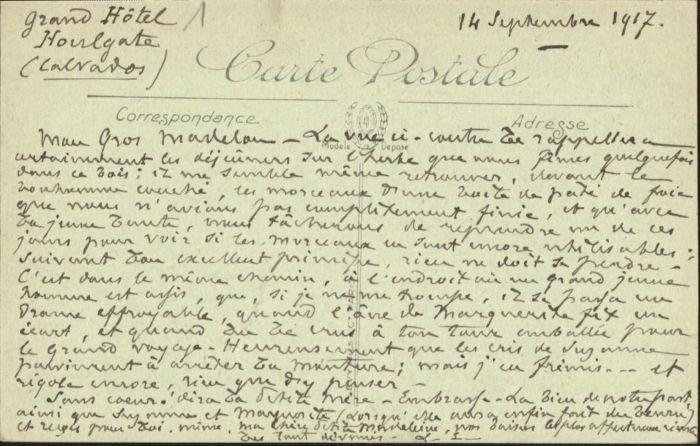 Grand Hôtel
Houlgate
(Calvados)
1
14 Septembre 1917.
Carte Postale
Correspondance
Adresse
Modèle Déposé
Mon Gros Madelon – La vue ci-contre te rappellera
certainement les déjeuners sur l'herbe que nous fîmes quelquefois
dans ce bois ; il me semble même retrouver, devant le
bonhomme couché, les morceaux d'une boîte de pâté de foie
que nous n'avions pas complètement finie, et qu'avec
ta jeune tante, nous tâcherons de reprendre un de ces
jours pour voir si les morceaux en sont encore utilisables :
suivant ton excellent principe, rien ne doit se perdre –
C'est dans le même chemin, à l'endroit où un grand jeune
homme est assis, que, si je ne me trompe, il se passa un
drame effroyable, quand l'âne de Marguerite fit un
écart, et quand tu te crus à ton tour emballée pour
le grand voyage – Heureusement que les cris de Suzanne
parvinrent à arrêter ta monture ; mais j'en frémis --- et
rigole encore, rien que d'y penser –
Sans coeur ! dira ta petite mère – Embrasse-la bien de notre part,
ainsi que Suzanne et Marguerite (lorsqu'elle aura enfin fait du beurre)
et reçois pour toi-même, ma chère petite Madeleine, nos baisers les plus affectueux